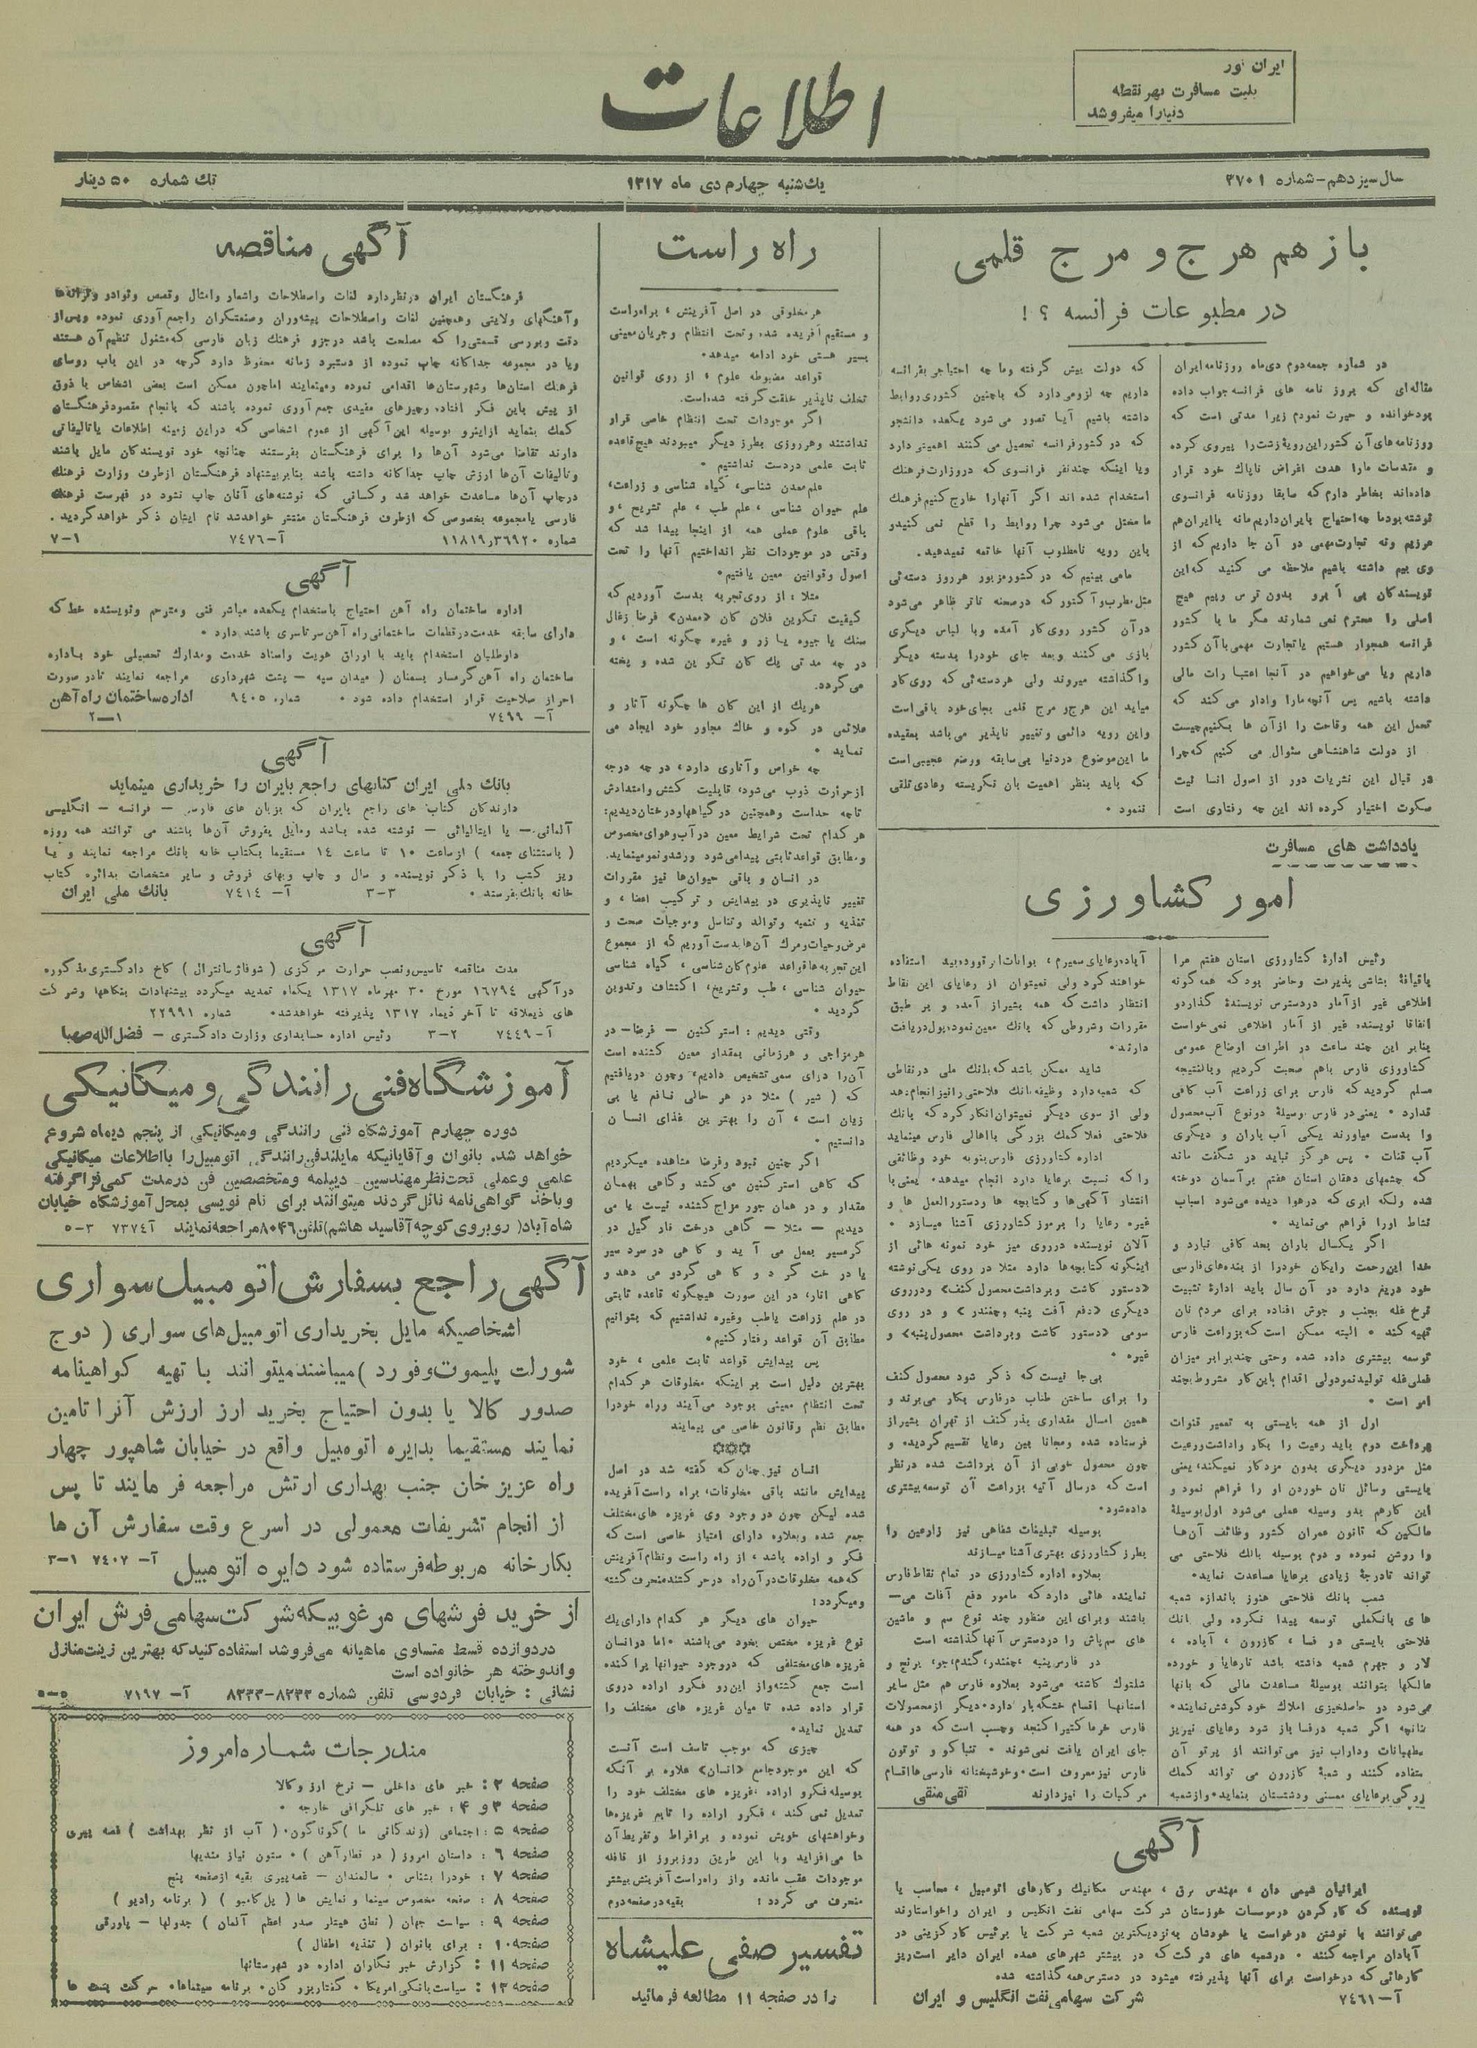 ایران تور
بلیت مسافرت بهر نقطه
دنیارا میفروشد
اطلاعات
سال سیزدهم - شماره ۳۷۰۱
یك شنبه چهارم دی ماه ۱۳۱۷
تك شماره ۵۰ دینار
باز هم هرج و مرج قلمی
در مطبوعات فرانسه ؟ !
در شماره جمعه دوم دی ماه روزنامه ایران
مقاله‌ای که بروز نامه های فرانسه جواب داده
بودخوانده و حیرت نمودم زیرا مدتی است که
روزنامه‌های آن کشور این رویهٔ زشت را پیروی کرده
و مقدسات مارا هدف اغراض ناپاك خود قرار
داده‌اند بخاطر دارم که سابقا روزنامه فرانسوی
نوشته بود ما چه احتیاج بایران داریم مانه با ایران هم
مرزیم ونه تجارت مهمی در آن جا داریم که از
وی بیم داشته باشیم ملاحظه می کنید که این
نویسندگان بی آبرو بدون ترس وبیم هیچ
اصلی را محترم نمی شمارند مگر ما با کشور
فرانسه همجوار هستیم یا تجارت مهمی با آن کشور
داریم ویا می‌خواهیم در آنجا اعتبارات مالی
داشته باشیم پس آنچه مارا وادار می‌کند که
تحمل این همه وقاحت را از آن ها بکنیم چیست
از دولت شاهنشاهی سئوال می کنیم که چرا
در قبال این نشریات دور از اصول انسا نیت
سکوت اختیار کرده اند این چه رفتاری است
که دولت پیش گرفته وما چه احتیاجی بفرانسه
داریم چه لزومی دارد که باچنین کشوری روابط
داشته باشیم آیا تصور می شود یکعده دانشجو
که در کشور فرانسه تحصیل می کنند اهمیتی دارد
ویا اینکه چندنفر فرانسوی که دروزارت فرهنك
استخدام شده اند اگر آنهارا خارج کنیم فرهنك
ما مختل می شود چرا روابط را قطع نمی کنیدو
باین رویه نامطلوب آنها خاتمه نمیدهید.
مامی بینیم که در کشور مزبور هر روز دسته‌ئی
مثل مطرب و آکتور که درصحنه تاتر ظاهر می‌شود
درآن کشور روی کار آمده وبا لباس دیگری
بازی می کنند وبعد جای خودرا بدسته دیگر
واگذاشته میروند ولی هر دسته‌ئی که روی کار
میاید این هرج و مرج قلمی بجای خود باقی است
واین رویه دائمی وتغییر ناپذیر می‌باشد بعقیده
ما این موضوع دردنیا بی‌سابقه ووضع عجیبی است
که باید بنظر اهمیت بان نگریسته وعادی تلقی
ننمود .
یادداشت های مسافرت
امور کشاورزی
رئیس ادارهٔ کشاورزی استان هفتم مرا
باقیافهٔ بشاشی پذیرفت وحاضر بود که همه گونه
اطلاعی غیر از آمار دردسترس نویسنده گذارد و
اتفاقا نویسنده غیر از آمار اطلاعی نمی‌خواست
بنابر این چند ساعت در اطراف اوضاع عمومی
کشاورزی فارس باهم صحبت کردیم وبالنتیجه
مسلم گردید که فارس برای زراعت آب کافی
ندارد . یعنی در فارس بوسیلهٔ دونوع آب محصول
را بدست میاورند یکی آب باران و دیگری
آب قنات . پس هرگز نباید در شگفت ماند
که چشمهای دهقان استان هفتم بر آسمان دوخته
شده ولکه ابری که درهوا دیده می‌شود اسباب
نشاط اورا فراهم می‌نماید .
اگر یکسال باران بحد کافی نبارد و
خدا این رحمت رایگان خودرا از بنده‌های فارسی
خود دریغ دارد در آن سال باید ادارهٔ تثبیت
نرخ غله بجنب و جوش افتاده برای مردم نان
تهیه کند . البته ممکن است که بزراعت فارس
توسعه بیشتری داده شده وحتی چندبرابر میزان
فعلی غله تولید نمود ولی اقدام باین کار مشروط بچند
امر است .
اول از همه بایستی به تعمیر قنوات
پرداخت دوم باید رعیت را بکار واداشت ورعیت
مثل مزدور دیگری بدون مزدکار نمیکند، یعنی
بایستی وسائل نان خوردن او را فراهم نمود و
این کارهم بدو وسیله عملی می‌شود اول بوسیلهٔ
مالکین که قانون عمران کشور وظائف آن‌ها
را روشن نموده و دوم بوسیله بانك فلاحتی می
تواند تادرجهٔ زیادی برعایا مساعدت نماید.
شعب بانك فلاحتی هنوز باندازه شعبه
های بانکملی توسعه پیدا نکرده ولی بانك
فلاحتی بایستی در فسا ، کازرون ، آباده ،
لار و جهرم شعبه داشته باشد تارعایا و خورده
مالکها بتوانند بوسیلهٔ مساعدت مالی که بانها
می‌شود در حاصلخیزی املاك خود کوشش نمایند.
اگر شعبه درفسا باز شود رعایای نیریز
اصطهبانات وداراب نیز می‌توانند از پرتو آن
استفاده کنند و شعبهٔ کازرون می تواند کمك
بزرگی برعایای ممسنی ودشتستان بنماید.وازشعبه
آباده،رعایای سمیرم، بوانات، ابرقووده‌بید استفاده
خواهند کرد ولی نمیتوان از رعایای این نقاط
انتظار داشت که همه بشیراز آمده و بر طبق
مقررات وشروطی که بانك معین نموده،پول دریافت
دارند.
شاید ممکن باشد که بانك ملی درنقاطی
که شعبه‌دارد وظیفه‌بانك فلاحتی رانیز انجام‌دهد
ولی از سوی دیگر نمیتوان انکار کرد که بانك
فلاحتی فعلا کمك بزرگی بااهالی فارس مینماید
اداره کشاورزی فارس بنوبه خود وظائفی
را که نسبت برعایا دارد انجام میدهد. یعنی با
انتشار آگهی‌ها و کتابچه ها ودستورالعمل ها و
غیره رعایا را برموز کشاورزی آشنا میسازد .
الان نویسنده درروی میز خود نمونه هائی از
اینگونه کتابچه‌ها دارد مثلا در روی یکی‌نوشته
«دستور کاشت وبرداشت محصول کنف» ودرروی
دیگری «دفع آفت پنبه وچغندر» و در روی
سومی «دستور کاشت وبرداشت محصول‌پنبه» و
غیره .
بی‌جا نیست که ذکر شود محصول کنف
را برای ساختن طناب درفارس بکار می‌برند و
همین امسال مقداری بذر کنف از تهران بشیراز
فرستاده شده ومجانا بین رعایا تقسیم گردید، و
چون محصول خوبی از آن برداشت شده درنظر
است که درسال آتیه بزراعت آن توسعه بیشتری
داده‌شود.
بوسیله تبلیغات شفاهی نیز زارعین را
بطرز کشاورزی بهتری آشنا میسازند
بعلاوه اداره کشاورزی در تمام نقاط فارس
نماینده هائی دارد که مامور دفع آفات می—
باشند وبرای این منظور چند نوع سم و ماشین
های سم‌پاش را دردسترس آنها گذاشته است
در فارس پنبه ،چغندر،گندم،جو، برنج و
شلتوك کاشته می‌شود بعلاوه فارس هم مثل سایر
استانها اقسام خشکه‌بار دارد.دیگر از محصولات
فارس خرما کتیرا کنجد وچسب است که در همه
جای ایران یافت نمی‌شوند . تنباکو و توتون
فارس نیز معروف است.وخوشبختانه فارسی‌ها اقسام
مرکبات را نیز دارند تقی منقی
آگهی
ایرانیان شیمی دان ، مهندس برق ، مهندس مکانیك وکارهای اتومبیل ، محاسب یا
نویسنده که کار کردن درموسسات خوزستان شرکت سهامی نفت انگلیس و ایران راخواستارند
می‌توانند با نوشتن درخواست یا خودشان به‌نزدیکترین شعبه شرکت یا برئیس کارگزینی در
آبادان مراجعه کنند . درشعبه های شرکت که در بیشتر شهرهای عمده ایران دایر است‌ریز
کارهائی که درخواست برای آنها پذیرفته میشود در دسترس همه گذاشته شده
آ- ۷۴۶۱ شرکت سهامی نفت انگلیس و ایران
راه راست
هر مخلوقی در اصل آفرینش ، براه راست
و مستقیم آفریده شده وتحت انتظام وجریان معینی
بسیر هستی خود ادامه میدهد.
قواعد مضبوطه علوم ، از روی قوانین
تخلف ناپذیر خلقت گرفته شده است.
اگر موجودات تحت انتظام خاصی قرار
نداشتند وهرروزی بطرز دیگر میبودند هیچ قاعده
ثابت علمی دردست نداشتیم .
علم معدن شناسی، گیاه شناسی و زراعت،
علم حیوان شناسی ، علم طب ، علم تشریح ، و
باقی علوم عملی همه از اینجا پیدا شد که
وقتی در موجودات نظر انداختیم آنها را تحت
اصول وقوانین معین یافتیم.
مثلا : از روی تجربه بدست آوردیم که
کیفیت تکوین فلان کان «معدن» فرضا زغال
سنك یا جیوه یا زر و غیره چگونه است ، و
در چه مدتی یك کان تکوین شده و پخته
می‌گردد.
هریك از این کان ها چگونه آثار و
علائمی در کوه و خاك مجاور خود ایجاد می
نماید .
چه خواص و آثاری دارد، در چه درجه
ازحرارت ذوب می‌شود، قابلیت کشش وامتدادش
تاچه حداست وهمچنین در گیاهها ودرختان دیدیم:
هر کدام تحت شرایط معین درآب و هوای مخصوص
و مطابق قواعد ثابتی پیدا می‌شود ورشدو نمو مینماید.
در انسان و باقی حیوان‌ها نیز مقررات
تغییر ناپذیری در پیدایش و ترکیب اعضا ، و
تغذیه و تنمیه و توالد وتناسل وموجبات صحت و
مرض وحیات ومرك آن‌ها بدست آوریم که از مجموع
این تجربه‌ها قواعد علوم کان شناسی ، گیاه شناسی
حیوان شناسی ، طب وتشریح، اکتشاف وتدوین
گردید .
وقتی دیدیم : استرکنین — فرضا— در
هرمزاجی و هرزمانی بمقدار معین کشنده است
آن را دوای سمی تشخیص دادیم، وچون دریافتیم
که ( شیر ) مثلا در هر حالی نافع یا بی
زیان است ، آن را بهترین غذای انسان
دانستیم .
اگر چنین نبود وفرضا مشاهده میکردیم
که گاهی استرکنین می‌کشد وگاهی بهمان
مقدار و در همان جور مزاج کشنده نیست یا می
دیدیم — مثلا — گاهی درخت نارگیل در
گرمسیر بعمل می آید و گاهی در سردسیر
یا درخت گردو گاهی گردو می دهد و
گاهی انار، در این صورت هیچگونه قاعده ثابتی
در علم زراعت یاطب وغیره نداشتیم که بتوانیم
مطابق آن قواعد رفتار کنیم.
پس پیدایش قواعد ثابت علمی ، خود
بهترین دلیل است بر اینکه مخلوقات هر کدام
تحت انتظام معینی بوجود می‌آیند وراه خودرا
مطابق نظم وقانون خاصی می پیمایند
***
انسان نیز چنان که گفته شد در اصل
پیدایش مانند باقی مخلوقات، براه راست آفریده
شده لیکن چون در وجود وی غریزه های مختلف
جمع شده وبعلاوه دارای امتیاز خاصی است که
فکر و اراده باشد ، از راه راست ونظام آفرینش
که همه مخلوقات در آن راه درحرکتند منحرف گشته
ومیگردد!
حیوان های دیگر هر کدام دارای یك
نوع غریزه مختص بخود می‌باشند .اما درانسان
غریزه های مختلفی که دروجود حیوانها پراکنده
است جمع گشته و از این رو فکرو اراده دروی
قرار داده شده تا میان غریزه های مختلف را
تعدیل نماید.
چیزی که موجب تاسف است آنست
که این موجود جامع «انسان» علاوه بر آنکه
بوسیله فکرو اراده ،غریزه های مختلف خود را
تعدیل نمی کند ، فکرو اراده را تابع غریزه‌ها
وخواهشهای خویش نموده و برافراط وتفریط آن
ها می‌افزاید وبا این طریق روزبروز از قافله
موجودات عقب مانده واز راه راست آفرینش بیشتر
منحرف می گردد ! بقیه درصفحه دوم
تفسیر صفی علیشاه
را در صفحه ۱۱ مطالعه فرمائید
آگهی مناقصه
فرهنگستان ایران درنظردارد لغات واصطلاحات واشعار وامثال وقصص ونوادر وترانه‌ها
وآهنگهای ولایتی وهمچنین لغات واصطلاحات پیشه‌وران وصنعتگران راجمع آوری نموده وپس از
دقت وبررسی قسمتی را که مصلحت باشد درجزو فرهنك زبان فارسی که مشغول تنظیم آن هستند
ویا در مجموعه جداگانه چاپ نموده از دستبرد زمانه محفوظ دارد گرچه در این باب روسای
فرهنك استان‌ها وشهرستان‌ها اقدامی نموده ومینمایند اماچون ممکن است بعضی اشخاص با ذوق
از پیش باین فکر افتاده وچیزهای مفیدی جمع آوری نموده باشند که بانجام مقصود فرهنگستان
کمك بنماید ازاینرو بوسیله این آگهی از عموم اشخاصی که دراین زمینه اطلاعات یاتالیفاتی
دارند تقاضا می‌شود آن‌ها را برای فرهنگستان بفرستند چنانچه خود نویسندگان مایل باشند
وتالیفات آن‌ها ارزش چاپ جداگانه داشته باشد بنابرپیشنهاد فرهنگستان ازطرف وزارت فرهنك
درچاپ آن‌ها مساعدت خواهد شد و کسانی که نوشته‌های آنان چاپ نشود در فهرست فرهنك
فارسی یامجموعه بخصوصی که ازطرف فرهنگستان منتشر خواهدشد نام ایشان ذکر خواهد گردید .
شماره ۱۱۸۱۹٫۳۶۹۲۰ آ- ۷۴۷۶ ۱-۷
آگهی
اداره ساختمان راه آهن احتیاج باستخدام یکعده مباشر فنی ومترجم ونویسنده خط که
دارای سابقه خدمت در قطعات ساختمانی راه آهن سرتاسری باشند دارد .
داوطلبان استخدام باید با اوراق هویت واسناد خدمت ومدارك تحصیلی خود باداره
ساختمان راه آهن گرمسار بسمنان ( میدان سپه — پشت شهرداری مراجعه نمایند تادر صورت
احراز صلاحیت قرار استخدام داده شود . شماره ۹۴۰۵ اداره ساختمان راه آهن
آ- ۷۴۹۹ ۱—۲
آگهی
بانك ملی ایران کتابهای راجع بایران را خریداری مینماید
دارندگان کتاب های راجع بایران که بزبان های فارسی — فرانسه — انگلیسی
آلمانی — یا ایتالیائی — نوشته شده باشد ومایل بفروش آن‌ها باشند می توانند همه روزه
( باستثنای جمعه ) ازساعت ۱۰ تا ساعت ۱۴ مستقیما بکتاب خانه بانك مراجعه نمایند و یا
ریز کتب را با ذکر نویسنده و سال و چاپ وبهای فروش و سایر مشخصات بدائره کتاب
خانه بانك بفرستند . ۳-۳ آ- ۷۴۱۴ بانك ملی ایران
آگهی
مدت مناقصه تاسیس ونصب حرارت مرکزی ( شوفاژ سانترال ) کاخ دادگستری مذکوره
درآگهی ۱۶۷۹۴ مورخ ۳۰ مهرماه ۱۳۱۷ یکماه تمدید میگردد پیشنهادات بنگاهها وشرکت
های ذیعلاقه تا آخر دیماه ۱۳۱۷ پذیرفته خواهدشد. شماره ۲۲۹۹۱
آ- ۷۴۴۹ ۲-۳ رئیس اداره حسابداری وزارت دادگستری — فضل‌الله صهبا
آموزشگاه فنی رانندگی و میکانیکی
دوره چهارم آموزشگاه فنی رانندگی ومیکانیکی از پنجم دیماه شروع
خواهد شد. بانوان و آقایانیکه مایلند فن رانندگی اتومبیل را بااطلاعات میکانیکی
علمی وعملی تحت نظر مهندسین دیپلمه ومتخصصین فن درمدت کمی فرا گرفته
وباخذ گواهی نامه نائل گردند میتوانند برای نام نویسی بمحل آموزشگاه خیابان
شاه آباد( روبروی کوچه آقاسید هاشم)تلفن ۸۰۴۶ مراجعه نمایند آ ۷۳۷۴ ۳-۵
آگهی راجع بسفارش اتومبیل سواری
اشخاصیکه مایل بخریداری اتومبیل‌های سواری ( دوج
شورلت پلیموت وفورد )میباشند میتوانند با تهیه گواهینامه
صدور کالا یا بدون احتیاج بخرید ارز ارزش آنرا تامین
نمایند مستقیما بدایره اتومبیل واقع در خیابان شاهپور چهار
راه عزیز خان جنب بهداری ارتش مراجعه فرمایند تا پس
از انجام تشریفات معمولی در اسرع وقت سفارش آن ها
بکارخانه مربوطه فرستاده شود دایره اتومبیل آ- ۷۴۰۷ ۱-۳
از خرید فرشهای مرغوبیکه شرکت سهامی فرش ایران
دردوازده قسط متساوی ماهیانه می‌فروشد استفاده کنید که بهترین زینت منازل
واندوخته هر خانواده است
نشانی : خیابان فردوسی تلفن شماره ۸۲۳۳-۸۲۳۳ آ- ۷۱۹۷ ۵-۵
مندرجات شماره امروز
صفحه ۲ : خبر های داخلی — نرخ ارز وکالا
صفحه ۳ و ۴ : خبر های تلگرافی خارجه .
صفحه ۵ : اجتماعی (زندگانی ما )گوناگون. ( آب از نظر بهداشت ) قصه پیری
صفحه ۶ : داستان امروز ( در قطار آهن ) . ستون نیاز مندیها
صفحه ۷ : خودرا بشناس . سالمندان — قصه پیری بقیه از صفحه پنج
صفحه ۸ : صفحه مخصوص سینما و نمایش ها ( پل کامبو ) ( برنامه رادیو )
صفحه ۹ : سیاست جهان ( نطق هیتلر صدر اعظم آلمان ) جدولها — پاورقی
صفحه ۱۰ : برای بانوان ( تغذیه اطفال )
صفحه ۱۱ : گزارش خبر نگاران اداره در شهرستانها
صفحه ۱۲ : سیاست بانکی امریکا . گفتاریزرگان. برنامه سینماها. حرکت پست ها